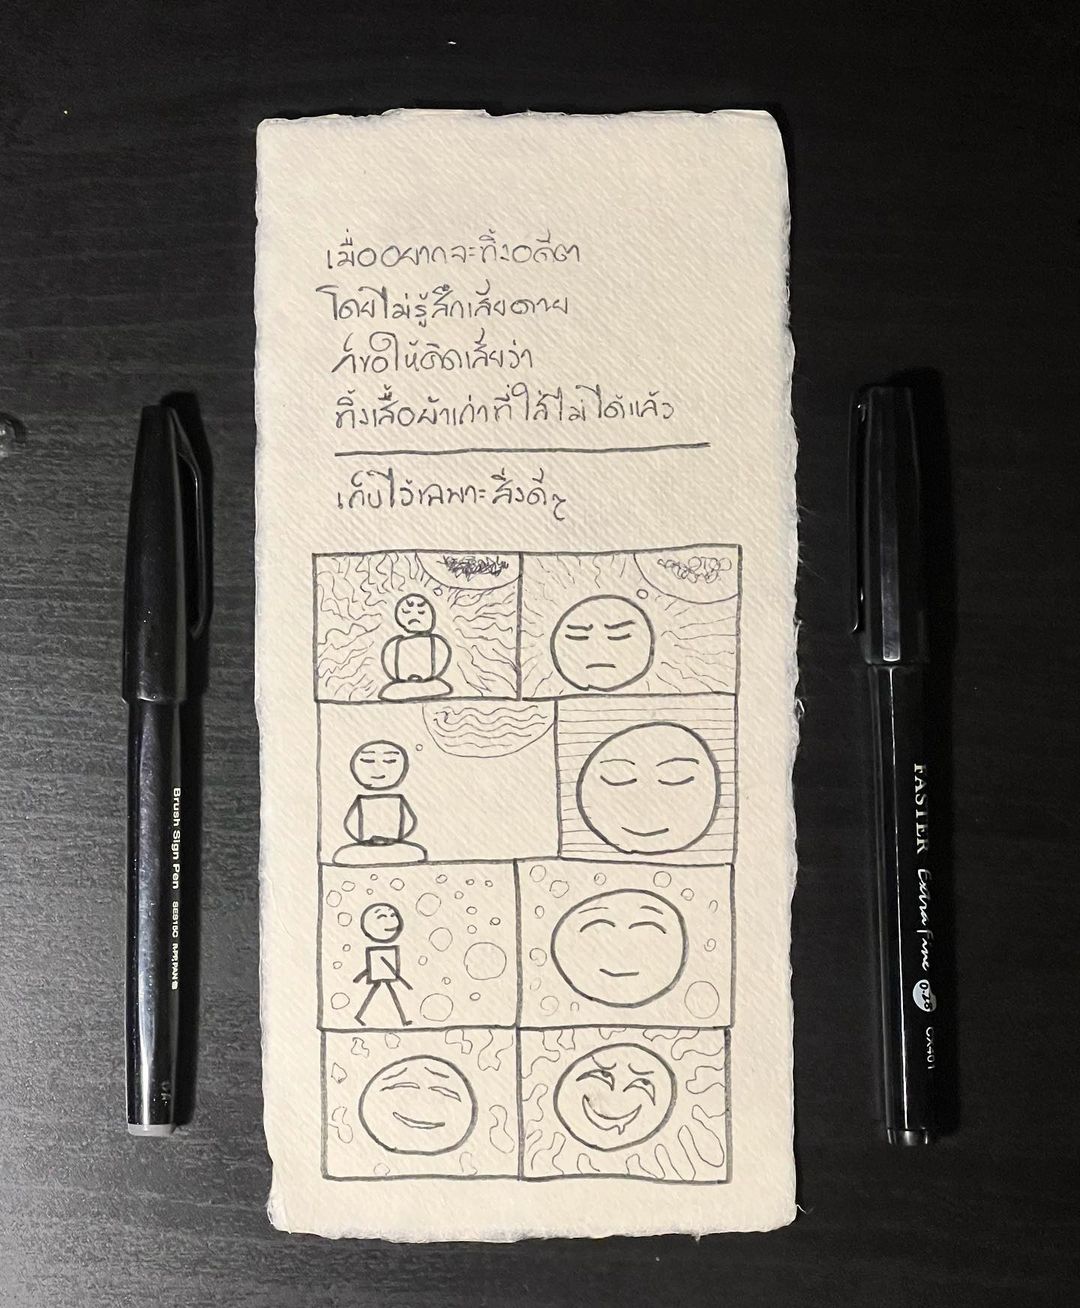 เมื่ออยากจะทิ้งอดีต
โดยไม่รู้สึกเสียดาย
ก็ขอให้คิดเสียว่า
ทิ้งเสื้อผ้าเก่าที่ใส่ไม่ได้แล้ว
เก็บไว้เฉพาะสิ่งดีๆ
Brush Sign Pen SES15C JAPAN
FASTER Extra fine 0.28 CX401